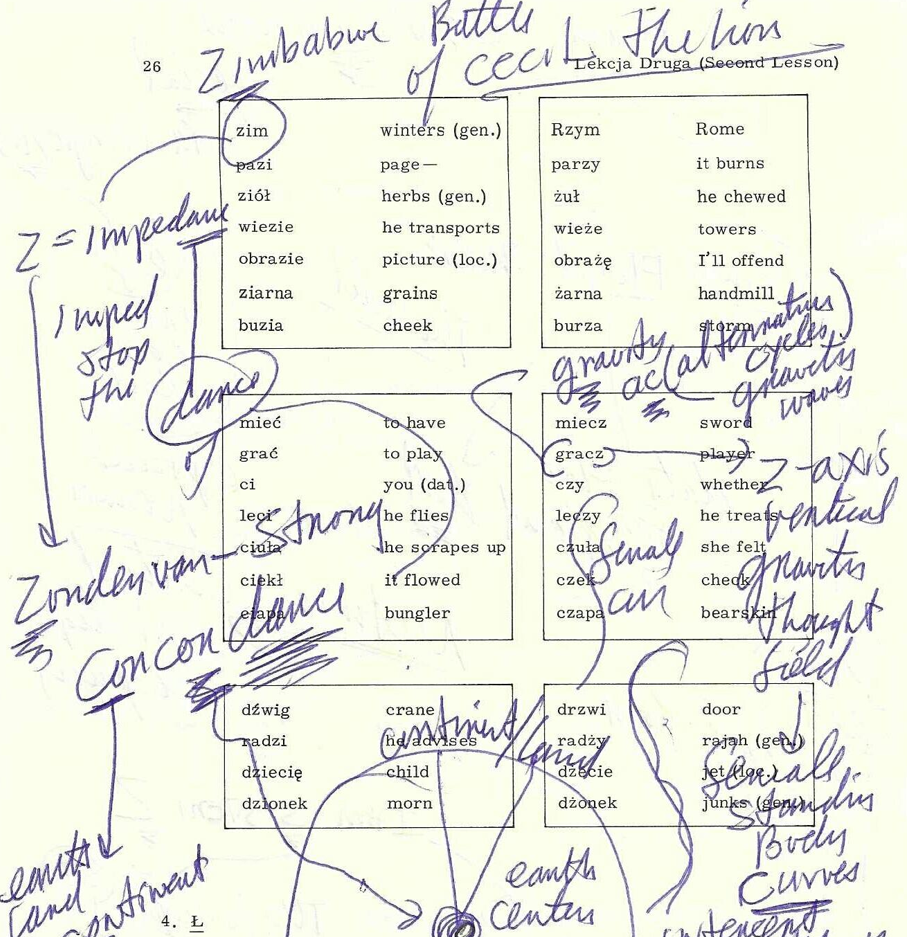 Zimbabwe Battle
of Cecil The lion
26
Lekcja Druga (Second Lesson)
zim winters (gen.)
pazi page—
ziół herbs (gen.)
wiezie he transports
obrazie picture (loc.)
ziarna grains
buzia cheek
Rzym Rome
parzy it burns
żuł he chewed
wieże towers
obrażę I'll offend
żarna handmill
burza storm
Z = impedance
imped
stop
the
dance
of
gravity
ac (alternating
cycles)
gravity
waves
mieć to have
grać to play
ci you (dat.)
leci he flies
ciuła he scrapes up
ciekł it flowed
ciapa bungler
miecz sword
gracz player
czy whether
leczy he treats
czuła she felt
czek check
czapa bearskin
Z-axis
vertical
gravity
thought
field
female
Zondervan — Strong
Concondance
dźwig crane
radzi he advises
dziecię child
dzionek morn
drzwi door
radży rajah (gen.)
dżecie jet (loc.)
dżonek junks (gen.)
continent/land
Body
Curves
earth
land
continent
earth
center
4. Ł